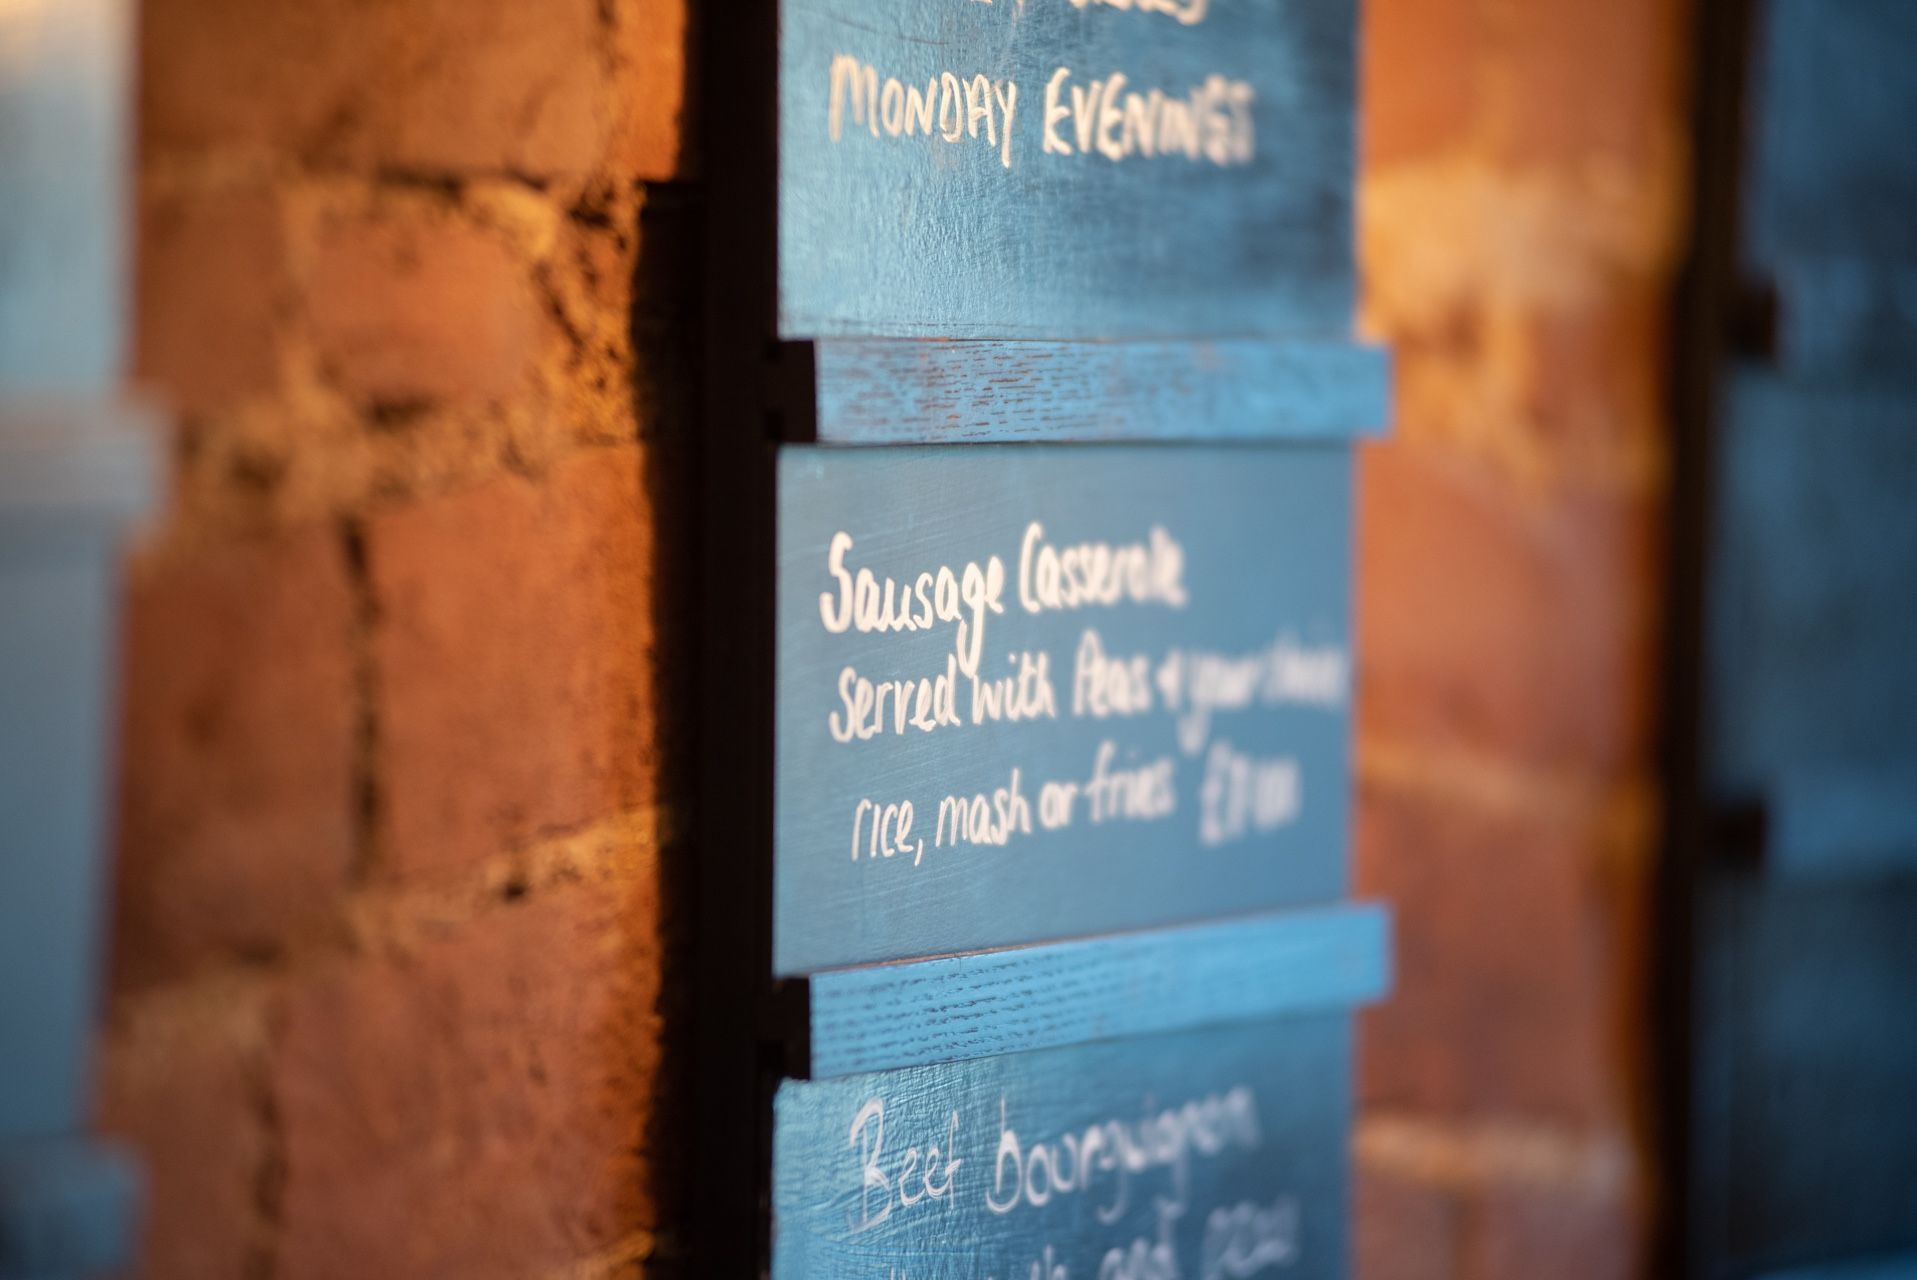 MONDAY EVENINGS
Sausage Casserole
Served with Peas & your choice
rice, mash or fries
Beef bourguignon